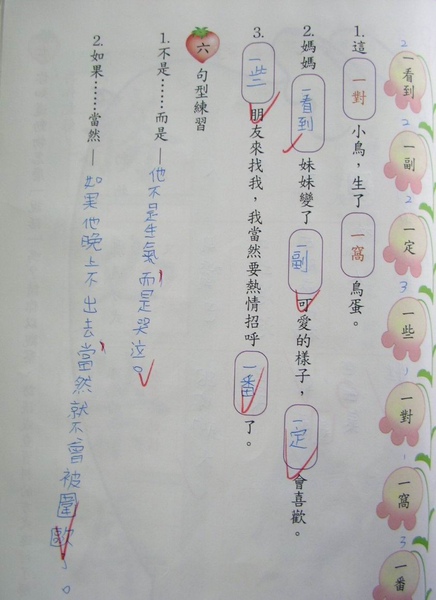 2 一看到
2 一副
2 一定
3 一些
1 一對
1 一窩
3 一番
1.這一對小鳥，生了一窩鳥蛋。
2.媽媽一看到妹妹變了一副可愛的樣子，一定會喜歡。
3.一些朋友來找我，我當然要熱情招呼一番了。
六 句型練習
1.不是……而是—他不是生氣，而是哭泣。
2.如果……當然—如果他晚上不出去，當然就不會被圍了。